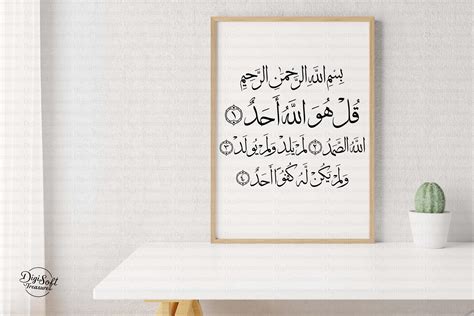 بِسْمِ اللَّهِ الرَّحْمَٰنِ الرَّحِيمِ
قُلْ هُوَ اللَّهُ أَحَدٌ ١
اللَّهُ الصَّمَدُ ٢ لَمْ يَلِدْ وَلَمْ يُولَدْ ٣
وَلَمْ يَكُن لَّهُ كُفُوًا أَحَدٌ ٤
DigiSoft
Treasures